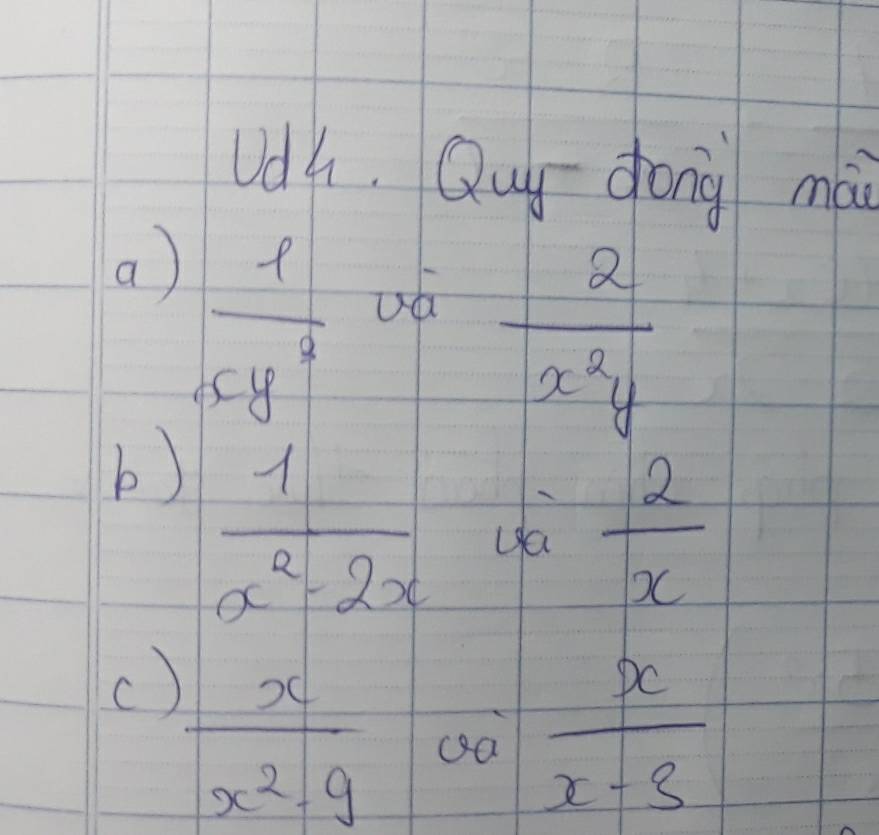 Vd4. Quy đồng mẫu
a) 1/xy² và 2/x²y
b) 1/x² - 2x và 2/x
c) x/x² - 9 và x/x - 3